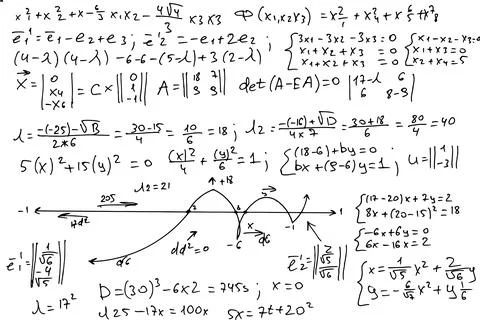 x²/2 + x²/2 + x - 6/3 x₁x₂ - 4√4/3 x3x3 Φ(x₁,x₂x3) = x²/1 + x²/4 + x 6/5 + x⁴8
e̅₁' = e̅₁ - e₂ + e₃; e̅₂' = -e₁ + 2e₂ {3x1 - 3x2 - 3x3 = 0 {x₁ - x₂ - x3 =
(4-λ)(4-λ) - 6 - 6 - (5-λ) + 3(2-λ) {x₁ + x₂ + x3 = 0 {x1 + x3 = 0
{x1 + x2 + x3 = 0 {x2 + x4 = 5
X = |0 x4 -x6| = C x ||0 1 -1|| A = ||18 7 9 9|| det(A-EA) = 0 |17-λ 6 6 8-9|
λ = -(-25)-√B / 2*6 = 30-15/4 = 10/6 = 18; λ2 = -(-16)+√D / 4x7 = 30+18/6 = 80/4 = 40
5(x)² + 15(y)² = 0 (x)²/4 + (y)²/6 = 1; {(18-6)+by = 0 bx + (9-6)y = 1; u = ||1 -3||
λ2 = 21 +18 5
205
-1 1
dd² -6 x d6 -1
d6 dd² = 0
{(17-20)x + 7y = 2
{8x + (20-15)² = 18
{-6x + 6y = 0
{6x - 16x = 2
e̅₁' = ||1/√6 -4/√5|| e̅₂' = ||2/√5 5/√6||
{x = 1/√5 x² + 2/√6 y
{y = -6/√7 x² + y 1/6
λ = 17² D = (30)³ - 6x2 = 745s; x = 0
λ25 - 17x = 100x 5x = 7t + 20²